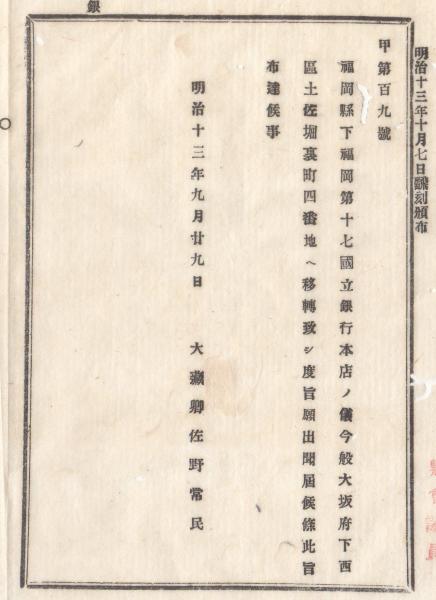 明治十三年十月七日飜刻頒布
甲第百九號
福岡縣下福岡第十七國立銀行本店ノ儀今般大坂府下西
區土佐堀裏町四番地ヘ移轉致シ度旨願出聞屆候條此旨
布達候事
明治十三年九月廿九日　大藏卿佐野常民
銀